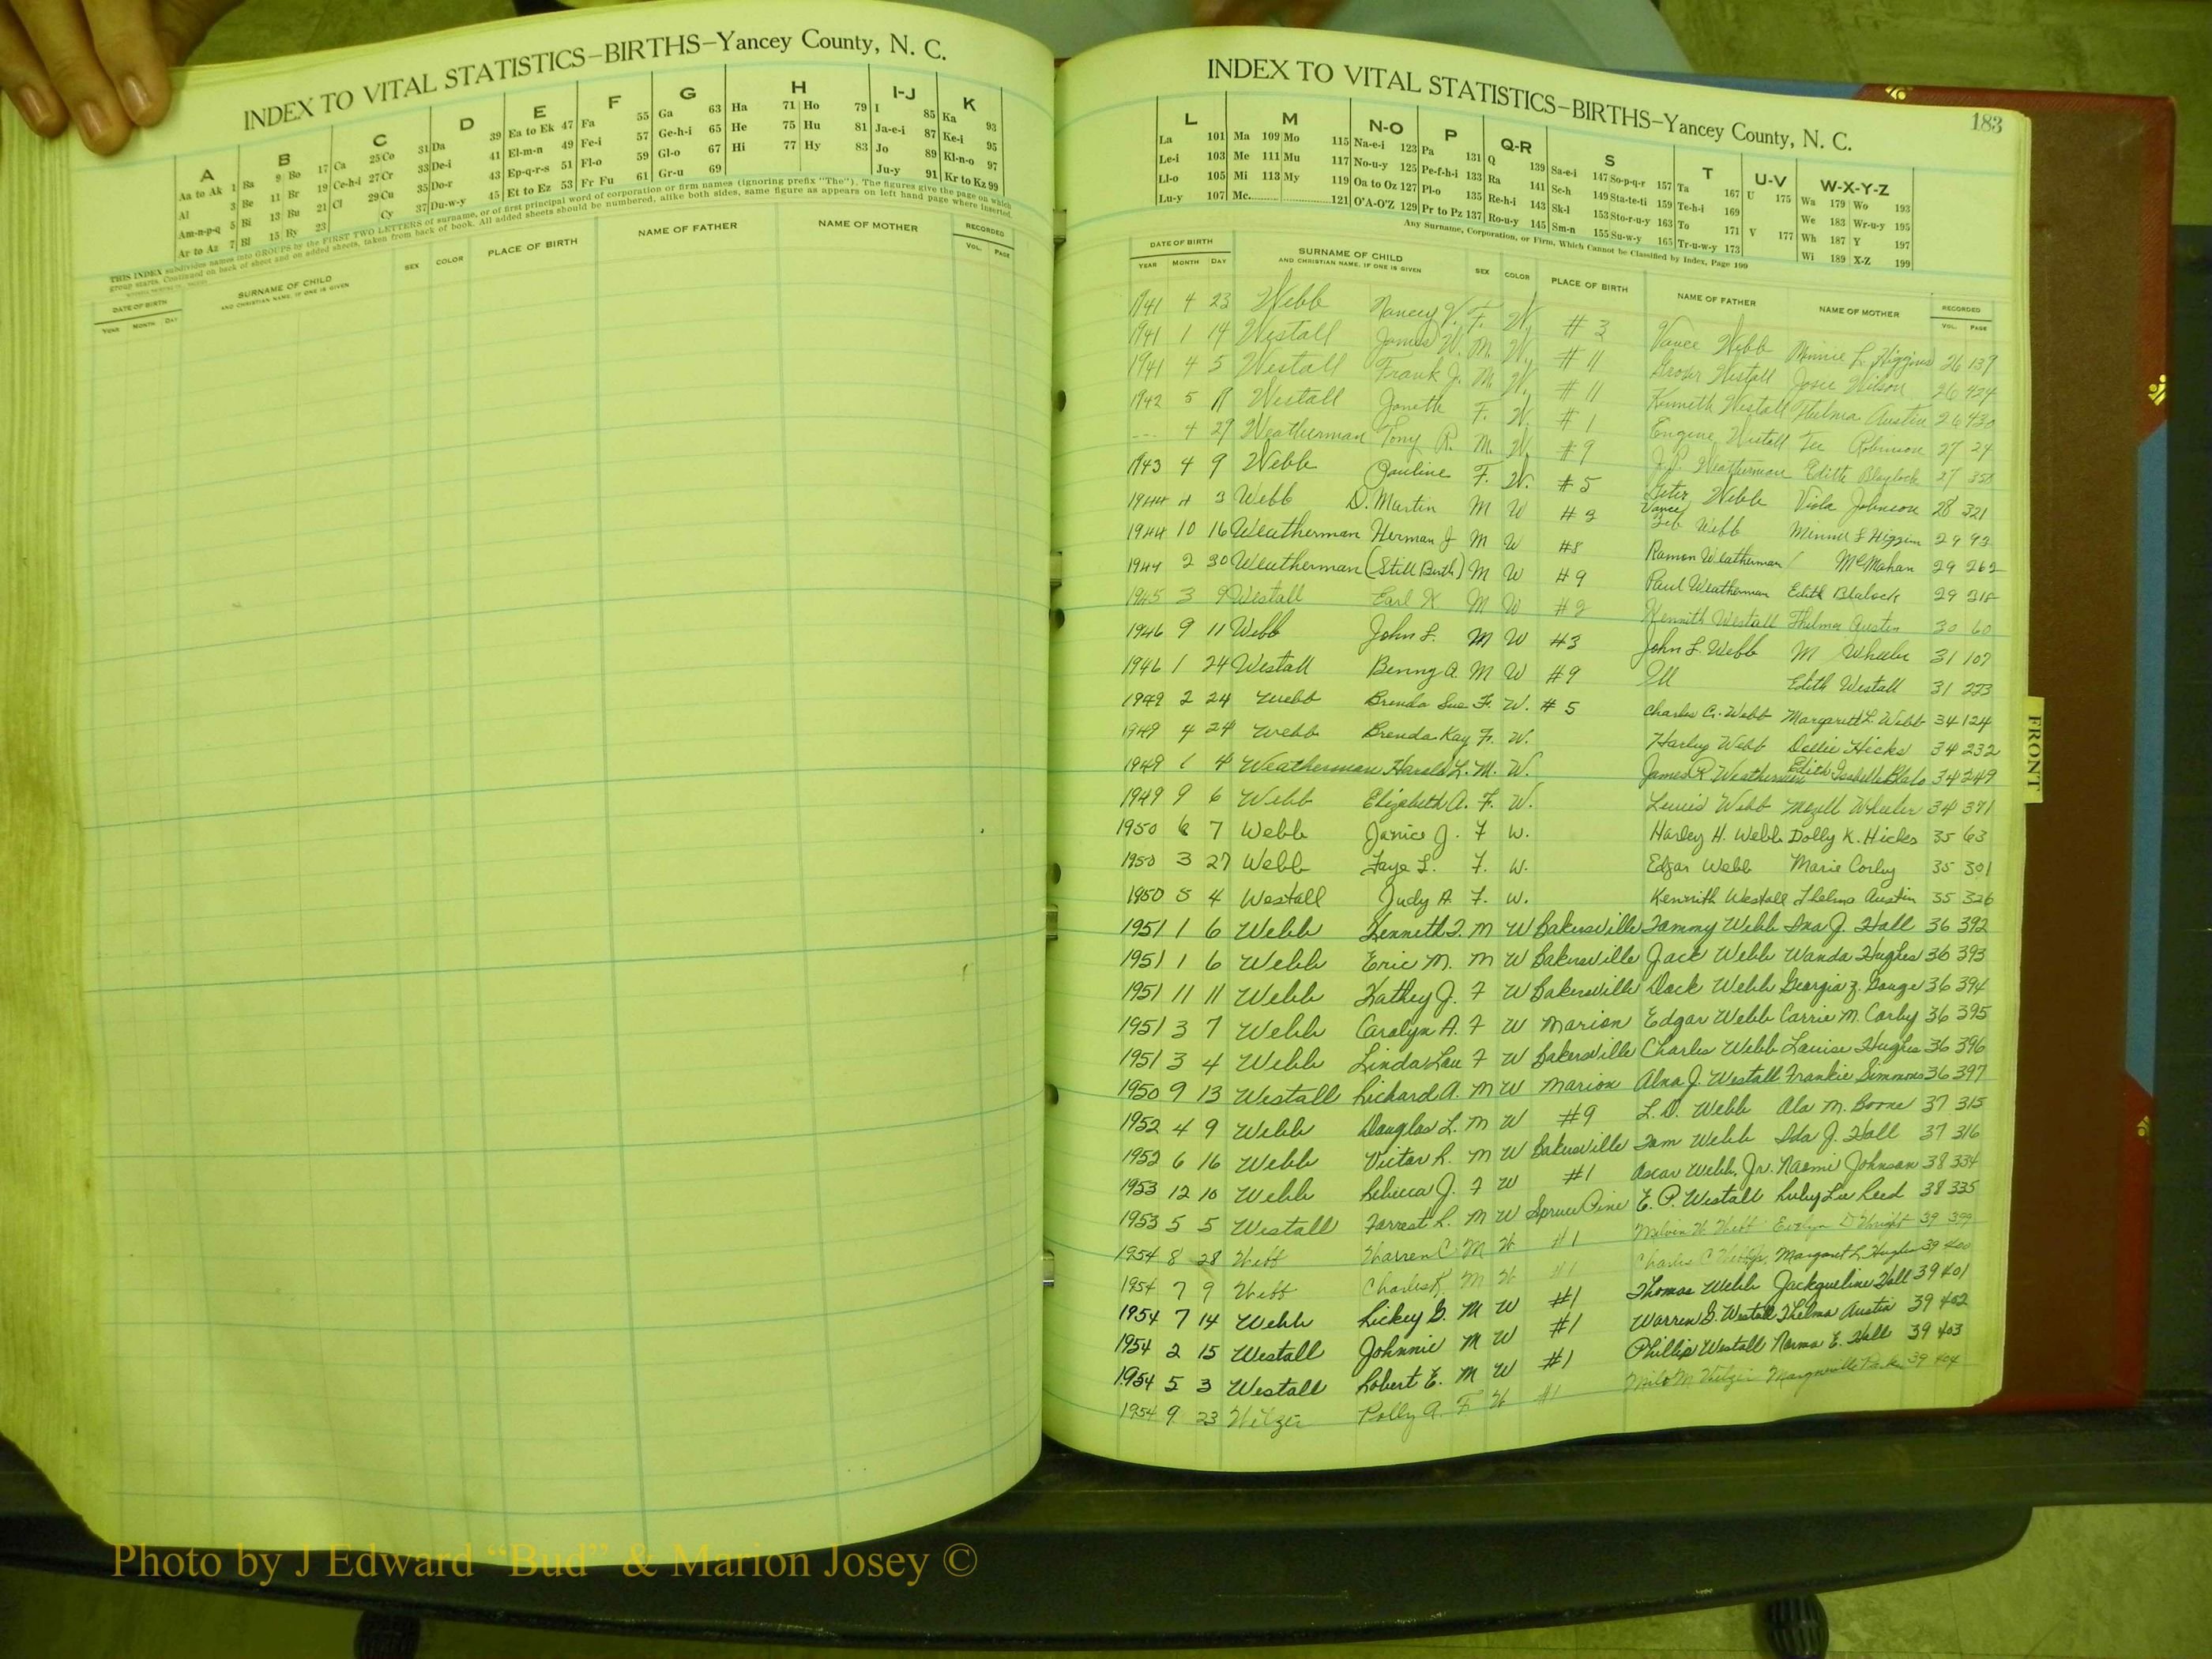 INDEX TO VITAL STATISTICS—BIRTHS—Yancey County, N. C.
A B C D E F G H I-J K
Aa to Ak 1 Ba 9 Bo 17 Ca 25 Co 31 Da 39 Ea to Ek 47 Fa 55 Ga 63 Ha 71 Ho 79 I 85 Ka 93
Al 3 Be 11 Br 19 Ce-h-i 27 Cr 33 De-i 41 El-m-n 49 Fe-i 57 Ge-h-i 65 He 75 Hu 81 Ja-e-i 87 Ke-i 95
Am-n-p-q 5 Bi 13 Bu 21 Cl 29 Cu 35 Do-r 43 Ep-q-r-s 51 Fl-o 59 Gl-o 67 Hi 77 Hy 83 Jo 89 Kl-n-o 97
Ar to Az 7 Bl 15 By 23 Cy 37 Du-w-y 45 Et to Ez 53 Fr Fu 61 Gr-u 69 Ju-y 91 Kr to Kz 99
THIS INDEX subdivides names into GROUPS by the FIRST TWO LETTERS of surname, or of first principal word of corporation or firm names (ignoring prefix "The"). The figures give the page on which
group starts. Continued on back of sheet and on added sheets, taken from back of book. All added sheets should be numbered, alike both sides, same figure as appears on left hand page where inserted.
DATE OF BIRTH SURNAME OF CHILD SEX COLOR PLACE OF BIRTH NAME OF FATHER NAME OF MOTHER RECORDED
YEAR MONTH DAY AND CHRISTIAN NAME, IF ONE IS GIVEN VOL. PAGE
INDEX TO VITAL STATISTICS—BIRTHS—Yancey County, N. C.
183
L M N-O P Q-R S T U-V W-X-Y-Z
La 101 Ma 109 Mo 115 Na-e-i 123 Pa 131 Q 139 Sa-e-i 147 So-p-q-r 157 Ta 167 U 175 Wa 179 Wo 193
Le-i 103 Me 111 Mu 117 No-u-y 125 Pe-f-h-i 133 Ra 141 Sc-h 149 Sta-te-ti 159 Te-h-i 169 We 183 Wr-u-y 195
Ll-o 105 Mi 113 My 119 Oa to Oz 127 Pl-o 135 Re-h-i 143 Sk-l 153 Sto-r-u-y 163 To 171 V 177 Wh 187 Y 197
Lu-y 107 Mc 121 O'A-O'Z 129 Pr to Pz 137 Ro-u-y 145 Sm-n 155 Su-w-y 165 Tr-u-w-y 173 Wi 189 X-Z 199
Any Surname, Corporation, or Firm, Which Cannot be Classified by Index, Page 199
DATE OF BIRTH SURNAME OF CHILD SEX COLOR PLACE OF BIRTH NAME OF FATHER NAME OF MOTHER RECORDED
YEAR MONTH DAY AND CHRISTIAN NAME, IF ONE IS GIVEN VOL. PAGE
1941 4 23 Webb Nancy V. F. W. #3 Vance Webb Minnie L. Higgins 26 139
1941 1 14 Westall James W. M. W. #11 Grover Westall Josie Wilson 26 424
1941 4 5 Westall Frank J. M. W. #11 Kenneth Westall Thelma Austin 26 430
1942 5 Westall Janeth F. W. #1 Eugene Westall Robinson 27 24
--- 4 27 Weatherman Tony R. M. W. #9 Weatherman Edith Blaylock 27 358
1943 4 9 Webb Pauline F. W. #5 Webb Viola Johnson 28 321
1944 4 3 Webb D. Martin M W #3 Vance Zeb Webb Minnie L Higgins 29 93
1944 10 16 Weatherman Herman J M W #8 Ramon Weatherman McMahan 29 262
1944 2 30 Weatherman (Still Birth) M W #9 Paul Weatherman Edith Blalock 29 318
1945 3 9 Westall Earl K M W #2 Kennith Westall Thelma Austin 30 60
1946 9 11 Webb John L. M W #3 John L. Webb M Wheeler 31 107
1946 1 24 Westall Benny A. M W #9 Ill Edith Westall 31 273
1949 2 24 Webb Brenda Sue F. W. #5 Charles C. Webb Margaret L. Webb 34 124
1949 4 24 Webb Brenda Kay F. W. Harley Webb Dollie Hicks 34 232
1949 1 4 Weatherman Harold L. M. W. James R Weatherman Edith Isabelle Blalo 34 249
1949 9 6 Webb Elizabeth A. F. W. Lewis Webb Mozell Wheeler 34 371
1950 6 7 Webb Janice J. F W. Harley H. Webb Dolly K. Hicks 35 63
1950 3 27 Webb Faye L. F. W. Edgar Webb Marie Corby 35 301
1950 5 4 Westall Judy A. F. W. Kennith Westall Thelma Austin 35 326
1951 1 6 Webb Kenneth T. M W Bakersville Tammy Webb Ina J. Hall 36 392
1951 1 6 Webb Eric M. M W Bakersville Jack Webb Wanda Hughes 36 393
1951 11 11 Webb Kathey J. F W Bakersville Dock Webb Georgia Z. Gouge 36 394
1951 3 7 Webb Carolyn A. F W Marion Edgar Webb Carrie M. Corby 36 395
1951 3 4 Webb Linda Lou F W Bakersville Charles Webb Louise Hughes 36 396
1950 9 13 Westall Richard A. M W Marion Alna J. Westall Frankie Simmons 36 397
1952 4 9 Webb Douglas L. M W #9 L. D. Webb Ala M. Boone 37 315
1952 6 16 Webb Victor R. M W Bakersville Tom Webb Ida J. Hall 37 316
1953 12 10 Webb Rebecca J. F W #1 Oscar Webb, Jr. Naomi Johnson 38 334
1953 5 5 Westall Forrest R. M W Spruce Pine E. P. Westall Ruby Lee Reed 38 335
1954 8 28 Webb Warren C. M W #1 Melvin W. Webb Evelyn D Wright 39 399
1954 7 9 Webb Charles K. M W #1 Charles C Webb Jr. Margaret L Hughes 39 400
1954 7 14 Webb Rickey G. M W #1 Thomas Webb Jackqueline Hall 39 401
1954 2 15 Westall Johnnie M W #1 Warren G. Westall Thelma Austin 39 402
1954 5 3 Westall Robert E. M W #1 Phillip Westall Norma E. Hall 39 403
1954 9 23 Polly A. F W #1 Milo M 39 404
FRONT
Photo by J Edward “Bud” & Marion Josey ©